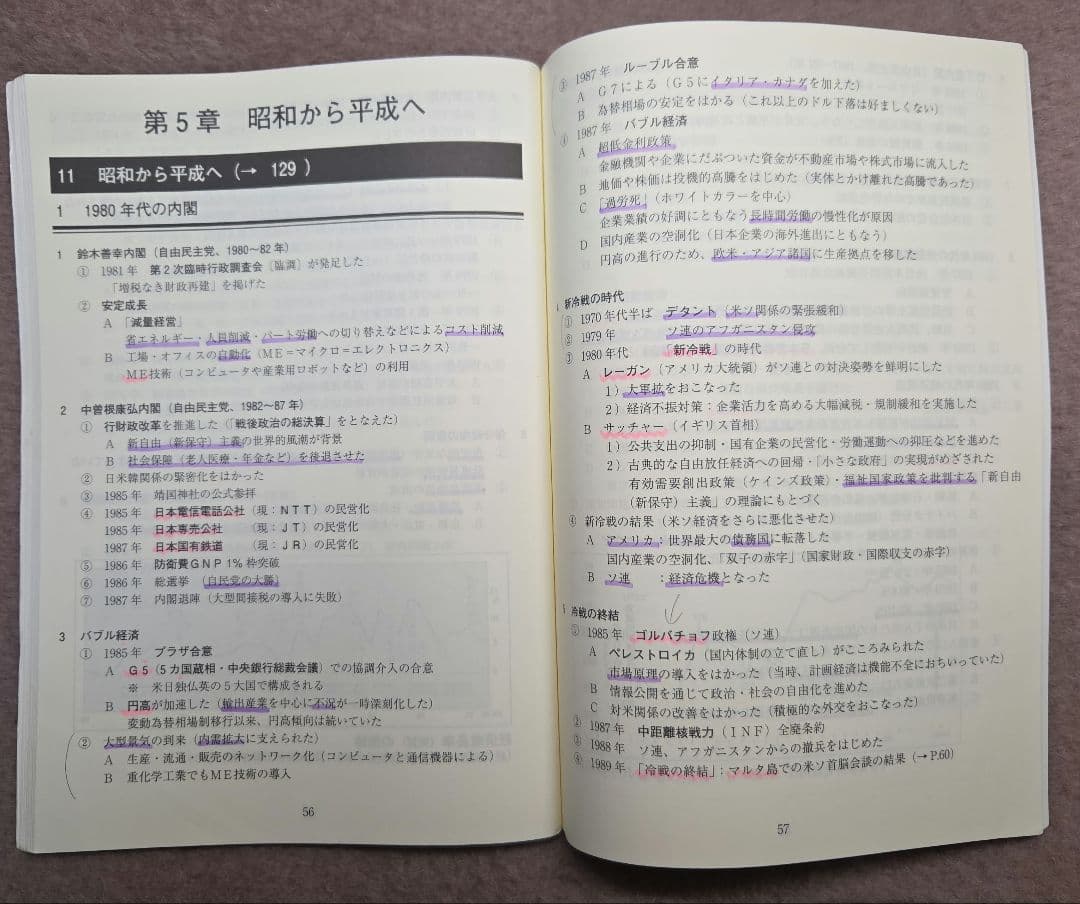 第5章 昭和から平成へ
11 昭和から平成へ(→ 129)
1 1980年代の内閣
1 鈴木善幸内閣(自由民主党、1980〜82年)
① 1981年 第2次臨時行政調査会〔臨調〕が発足した
「増税なき財政再建」を掲げた
② 安定成長
A 「減量経営」
省エネルギー・人員削減・パート労働への切り替えなどによるコスト削減
B 工場・オフィスの自動化(ME=マイクロ=エレクトロニクス)
ME技術(コンピュータや産業用ロボットなど)の利用
2 中曽根康弘内閣(自由民主党、1982〜87年)
① 行財政改革を推進した(「戦後政治の総決算」をとなえた)
A 新自由(新保守)主義の世界的風潮が背景
B 社会保障(老人医療・年金など)を後退させた
② 日米韓関係の緊密化をはかった
③ 1985年 靖国神社の公式参拝
④ 1985年 日本電信電話公社(現:NTT)の民営化
1985年 日本専売公社 (現:JT)の民営化
1987年 日本国有鉄道 (現:JR)の民営化
⑤ 1986年 防衛費GNP1%枠突破
⑥ 1986年 総選挙 (自民党の大勝)
⑦ 1987年 内閣退陣(大型間接税の導入に失敗)
3 バブル経済
① 1985年 プラザ合意
A G5(5カ国蔵相・中央銀行総裁会議)での協調介入の合意
※ 米日独仏英の5大国で構成される
B 円高が加速した(輸出産業を中心に不況が一時深刻化した)
変動為替相場制移行以来、円高傾向は続いていた
② 大型景気の到来(内需拡大に支えられた)
A 生産・流通・販売のネットワーク化(コンピュータと通信機器による)
B 重化学工業でもME技術の導入
56
③ 1987年 ルーブル合意
A G7による(G5にイタリア・カナダを加えた)
B 為替相場の安定をはかる(これ以上のドル下落は好ましくない)
④ 1987年 バブル経済
A 超低金利政策
金融機関や企業にだぶついた資金が不動産市場や株式市場に流入した
B 地価や株価は投機的高騰をはじめた(実体とかけ離れた高騰であった)
C 「過労死」(ホワイトカラーを中心)
企業業績の好調にともなう長時間労働の慢性化が原因
D 国内産業の空洞化(日本企業の海外進出にともなう)
円高の進行のため、欧米・アジア諸国に生産拠点を移した
新冷戦の時代
① 1970年代半ば デタント(米ソ関係の緊張緩和)
② 1979年 ソ連のアフガニスタン侵攻
③ 1980年代 「新冷戦」の時代
A レーガン(アメリカ大統領)がソ連との対決姿勢を鮮明にした
1)大軍拡をおこなった
2)経済不振対策:企業活力を高める大幅減税・規制緩和を実施した
B サッチャー(イギリス首相)
1)公共支出の抑制・国有企業の民営化・労働運動への抑圧などを進めた
2)古典的な自由放任経済への回帰・「小さな政府」の実現がめざされた
有効需要創出政策(ケインズ政策)・福祉国家政策を批判する「新自由
(新保守)主義」の理論にもとづく
④ 新冷戦の結果(米ソ経済をさらに悪化させた)
A アメリカ:世界最大の債務国に転落した
国内産業の空洞化、「双子の赤字」(国家財政・国際収支の赤字)
B ソ連 :経済危機となった
冷戦の終結
① 1985年 ゴルバチョフ政権(ソ連)
A ペレストロイカ(国内体制の立て直し)がこころみられた
市場原理の導入をはかった(当時、計画経済は機能不全におちいっていた)
B 情報公開を通じて政治・社会の自由化を進めた
C 対米関係の改善をはかった(積極的な外交をおこなった)
② 1987年 中距離核戦力(INF)全廃条約
③ 1988年 ソ連、アフガニスタンからの撤兵をはじめた
④ 1989年 「冷戦の終結」:マルタ島での米ソ首脳会談の結果(→P.60)
57